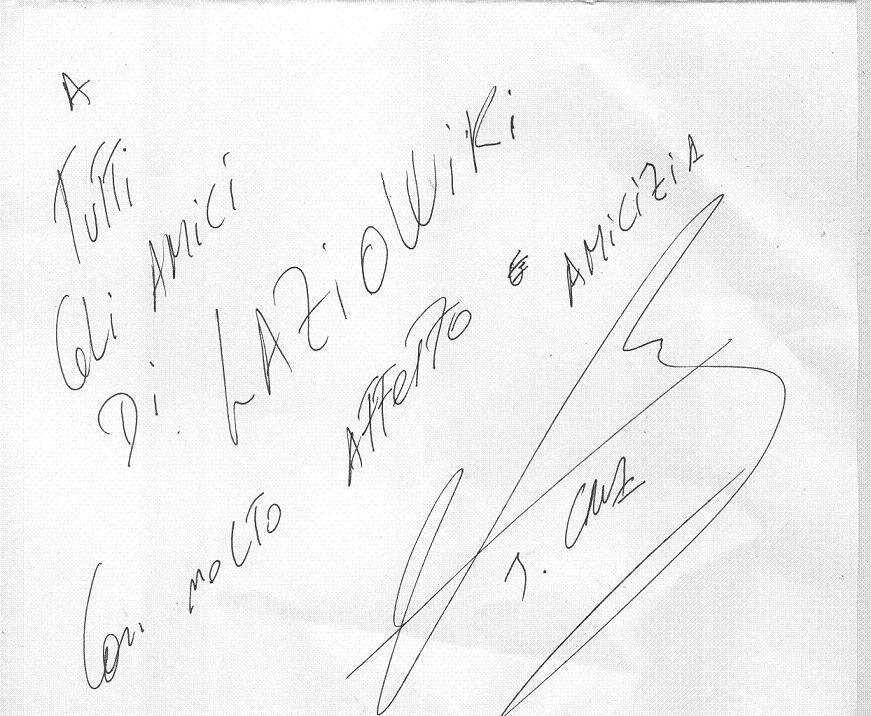 A
TUTTI
GLI AMICI
DI LAZIOWIKI
CON MOLTO AFFETTO E AMICIZIA
J. CRUZ